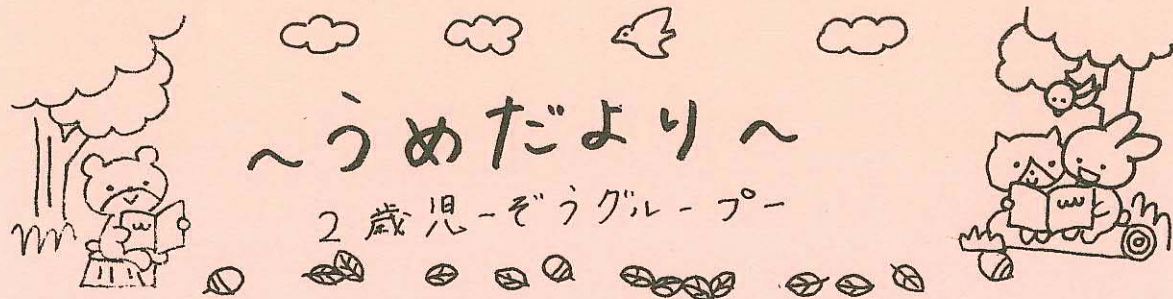 ～うめだより～
2歳児ーぞうグループー